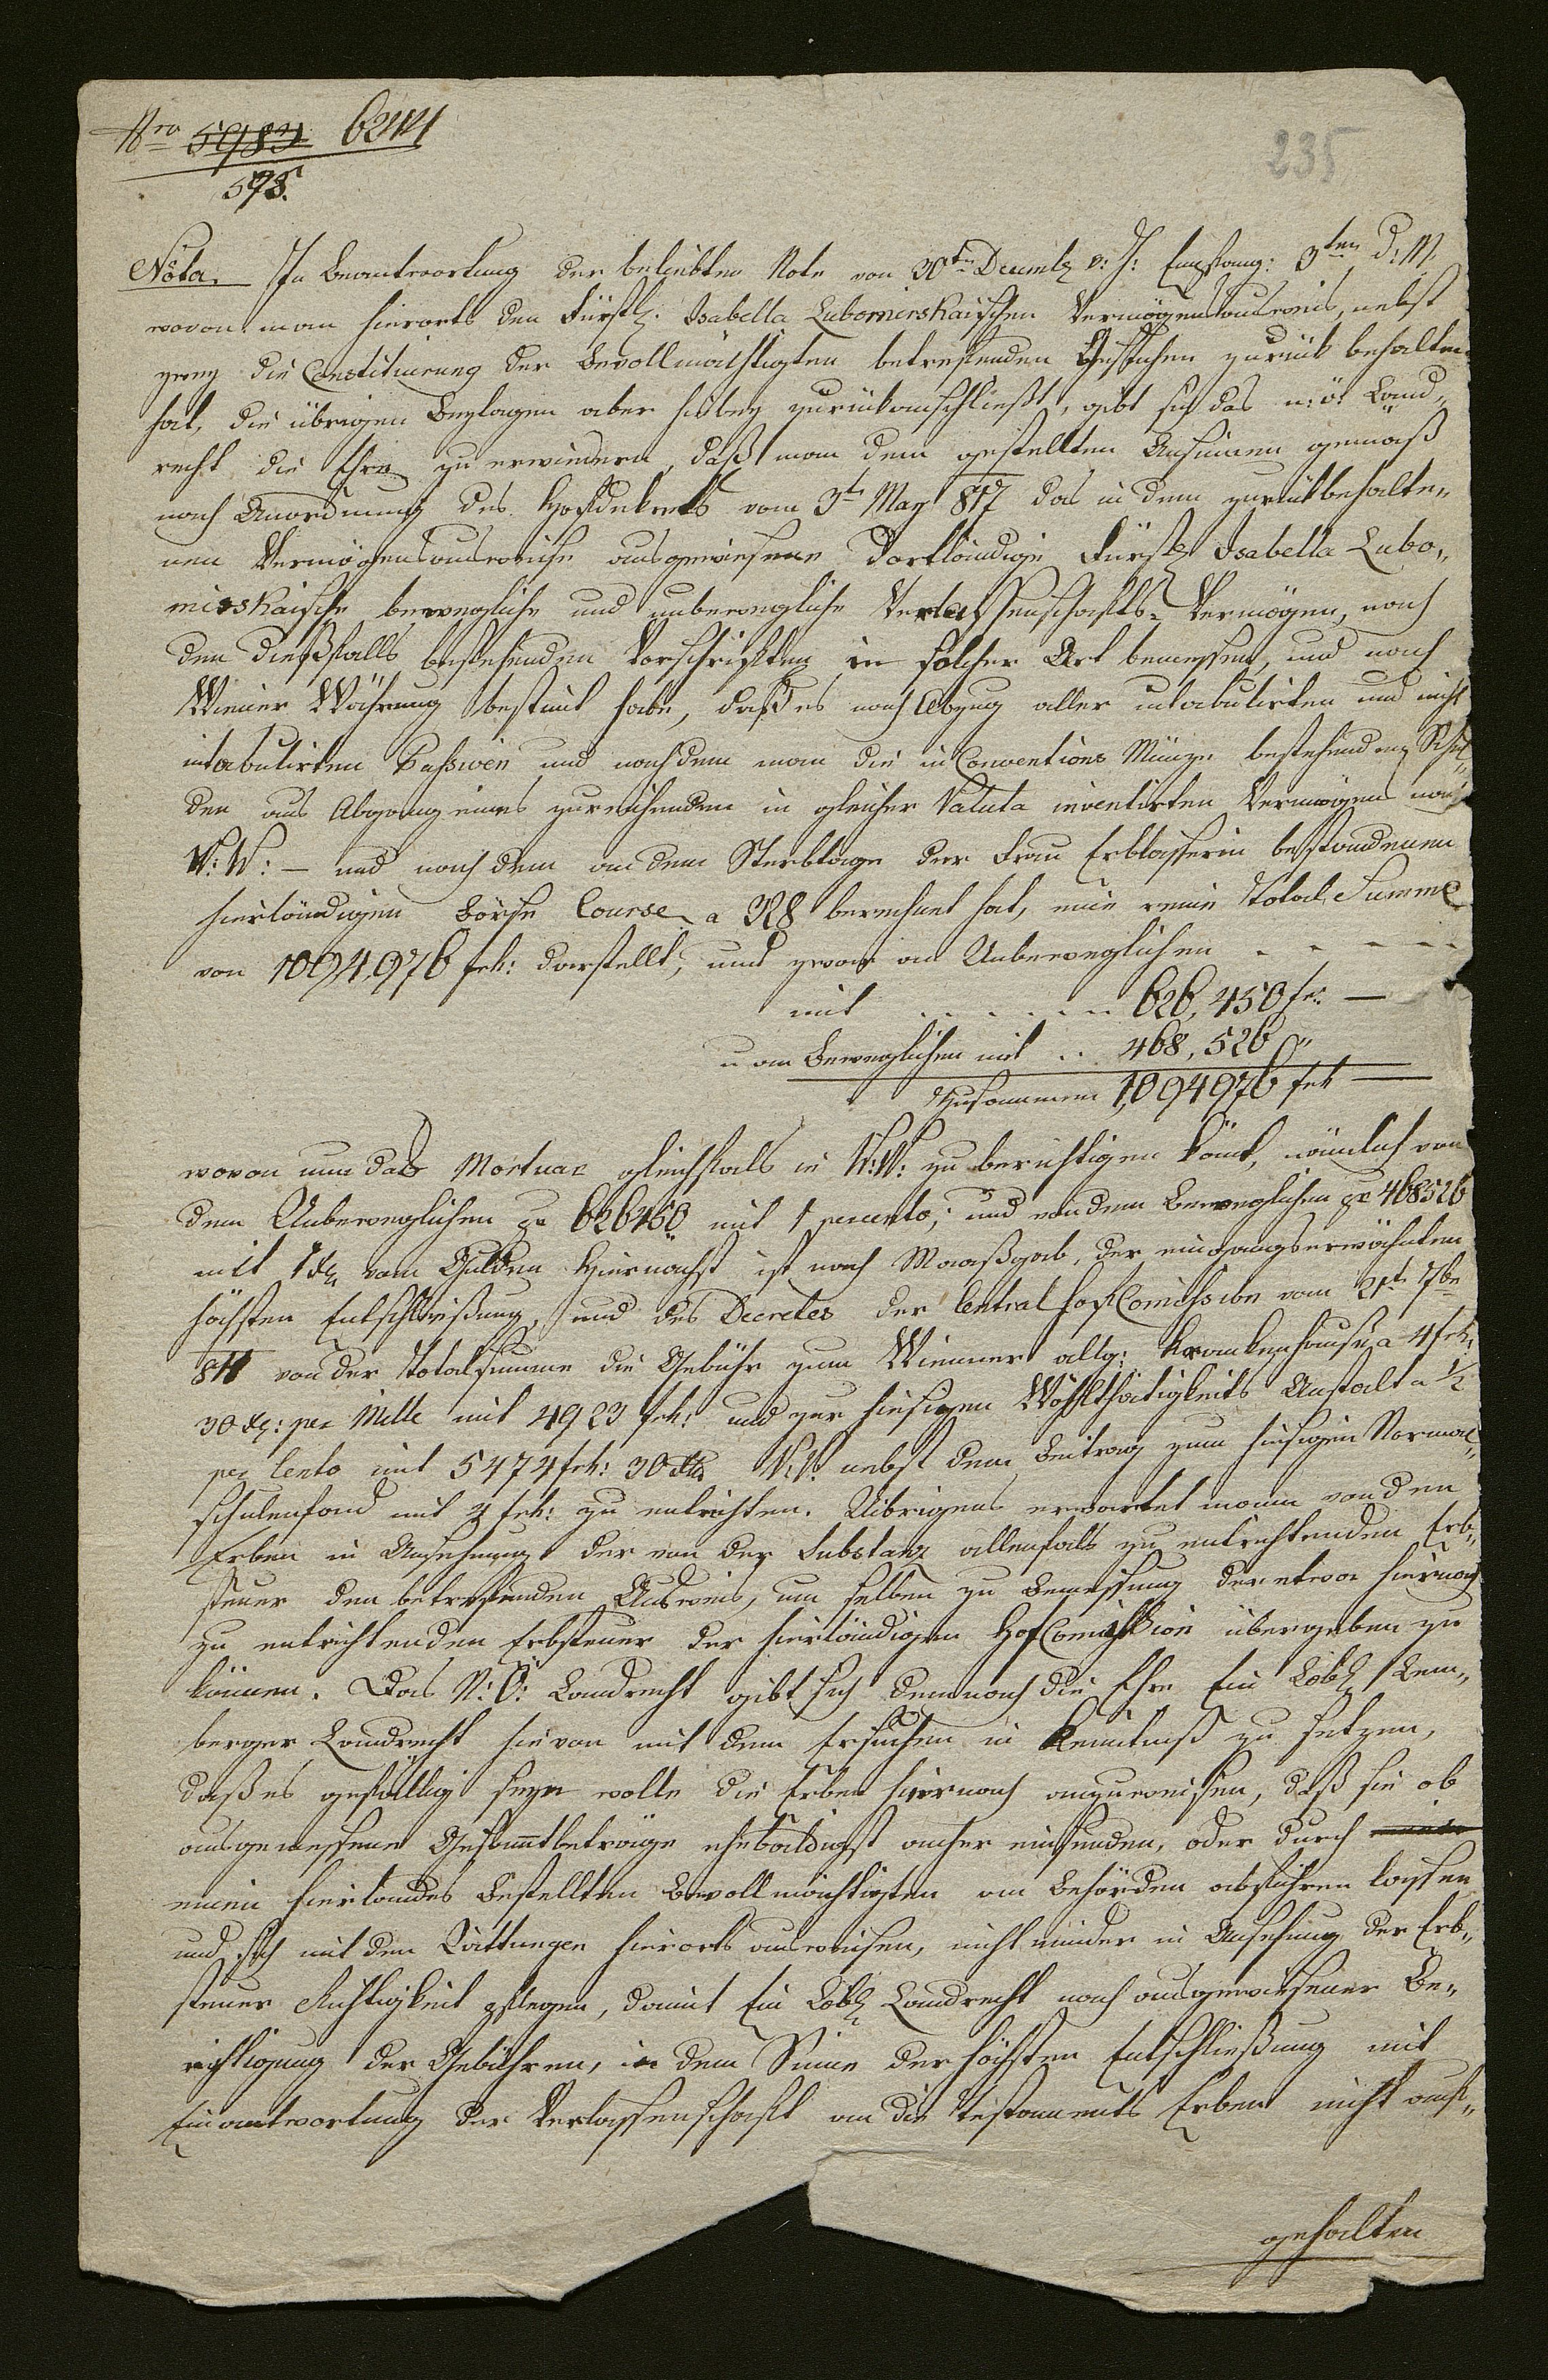 Nro 5983 6244
595.
235
Nota. In Beantwortung der beliebten Note von 30ten Decemb v: J: Empfang: 3ten d: M.
wovon man hierorts den Fürstl: Isabella Lubomirskaischen Vermögensausweis, nebst
zwey die Constituirung der Bevollmächtigten betrefenden Gesuchen zurück behalten
hat, die übrigen Beylagen aber hiebey zurückanschließt, gibt sich das n: ö: Land„
recht die Ehre zu erwiedern, daß man dem gestellten Ansinnen gemäß
nach Anordnung des Hofdekrets vom 3t May 817 das in dem zurückbehalte„
nen Vermögensausweise ausgewiesene dortländige Fürstl Isabella Lubo„
mirskaische bewegliche und unbewegliche Verlassenschafts-Vermögen, nach
den dießfalls bestehenden Vorschriften in solcher Art bemessen, und nach
Wiener Währung bestimt habe, daß es nach Abzug aller intabulirten und nicht
intabulirten Passiven und nachdem man die in Conventions Münze bestehenden Schul„
den aus Abgang eines zureichenden in gleicher Valuta inventirten Vermögens nach
W: W: – und nach dem an dem Sterbtage der Frau Erblasserin bestandenen
hierländigen Börse Course a 328 berechnet hat, eine reine Total Summe
von 1094,976 frh: darstellt, und zwar an Unbeweglichen - - - - -
mit . . . . . . 626,450 fr: —
u an Beweglichen mit .. 468,526 „
Zusammen 1,094976 frh —
wovon nun das Mortuar gleichfals in W: W: zu berichtigen kömt, nämlich von
dem Unbeweglichen pr 626450 mit 1 percento, und von dem Beweglichen pr 468526
mit 1 xr vom Gulden Hiernächst ist nach Maaßgab, der eingangserwähnten
höchsten Entschließung, und des Decretes der Central Hof Comission vom 21t 7br
811 von der Totalsumme die Gebühr zum Wiener allg: Krankenhause, a 4 frh:
30 xr: per Mille mit 4923 frh: und zur hiesigen Wohlthätigkeits Anstalt a ½
per Cento mit 5474 frh: 30 xr W: W: nebst dem Beitrag zum hiesigen Normal„
schulenfond mit 4 frh: zu entrichten. Uibrigens erwartet mann von den
Erben in Ansehung der von der Substanz allenfals zu entrichtenden Erb„
steuer den betrefenden Ausweis, um selben zu Bemessung der etwa hiernach
zu entrichtenden Erbsteuer der hierländigen Hof Comission übergeben zu
können. Das N: Ö: Landrecht gibt sich demnach die Ehre Ein Löbl Lem„
berger Landrecht hievon mit dem Ersuchen in Kenntniß zu setzen,
daß es gefällig seyn wolle die Erben hiernach anzuweisen, daß sie ob
ausgemessene Gesammtbeträge ehebaldigst anher einsenden, oder durch
einen hierlandes bestellten Bevollmächtigten an Behörden abführen lassen
und sich mit den Quittungen hierorts ausweisen, nicht minder in Ansehung der Erb„
steuer Richtigkeit pflegen, damit Ein Löbl Landrecht nach ausgewiesener Be„
richtigung der Gebühren, in dem Sinne der höchsten Entschließung mit
Einantwortung der Verlassenschaft an die Testaments Erben nicht auf„
gehalten